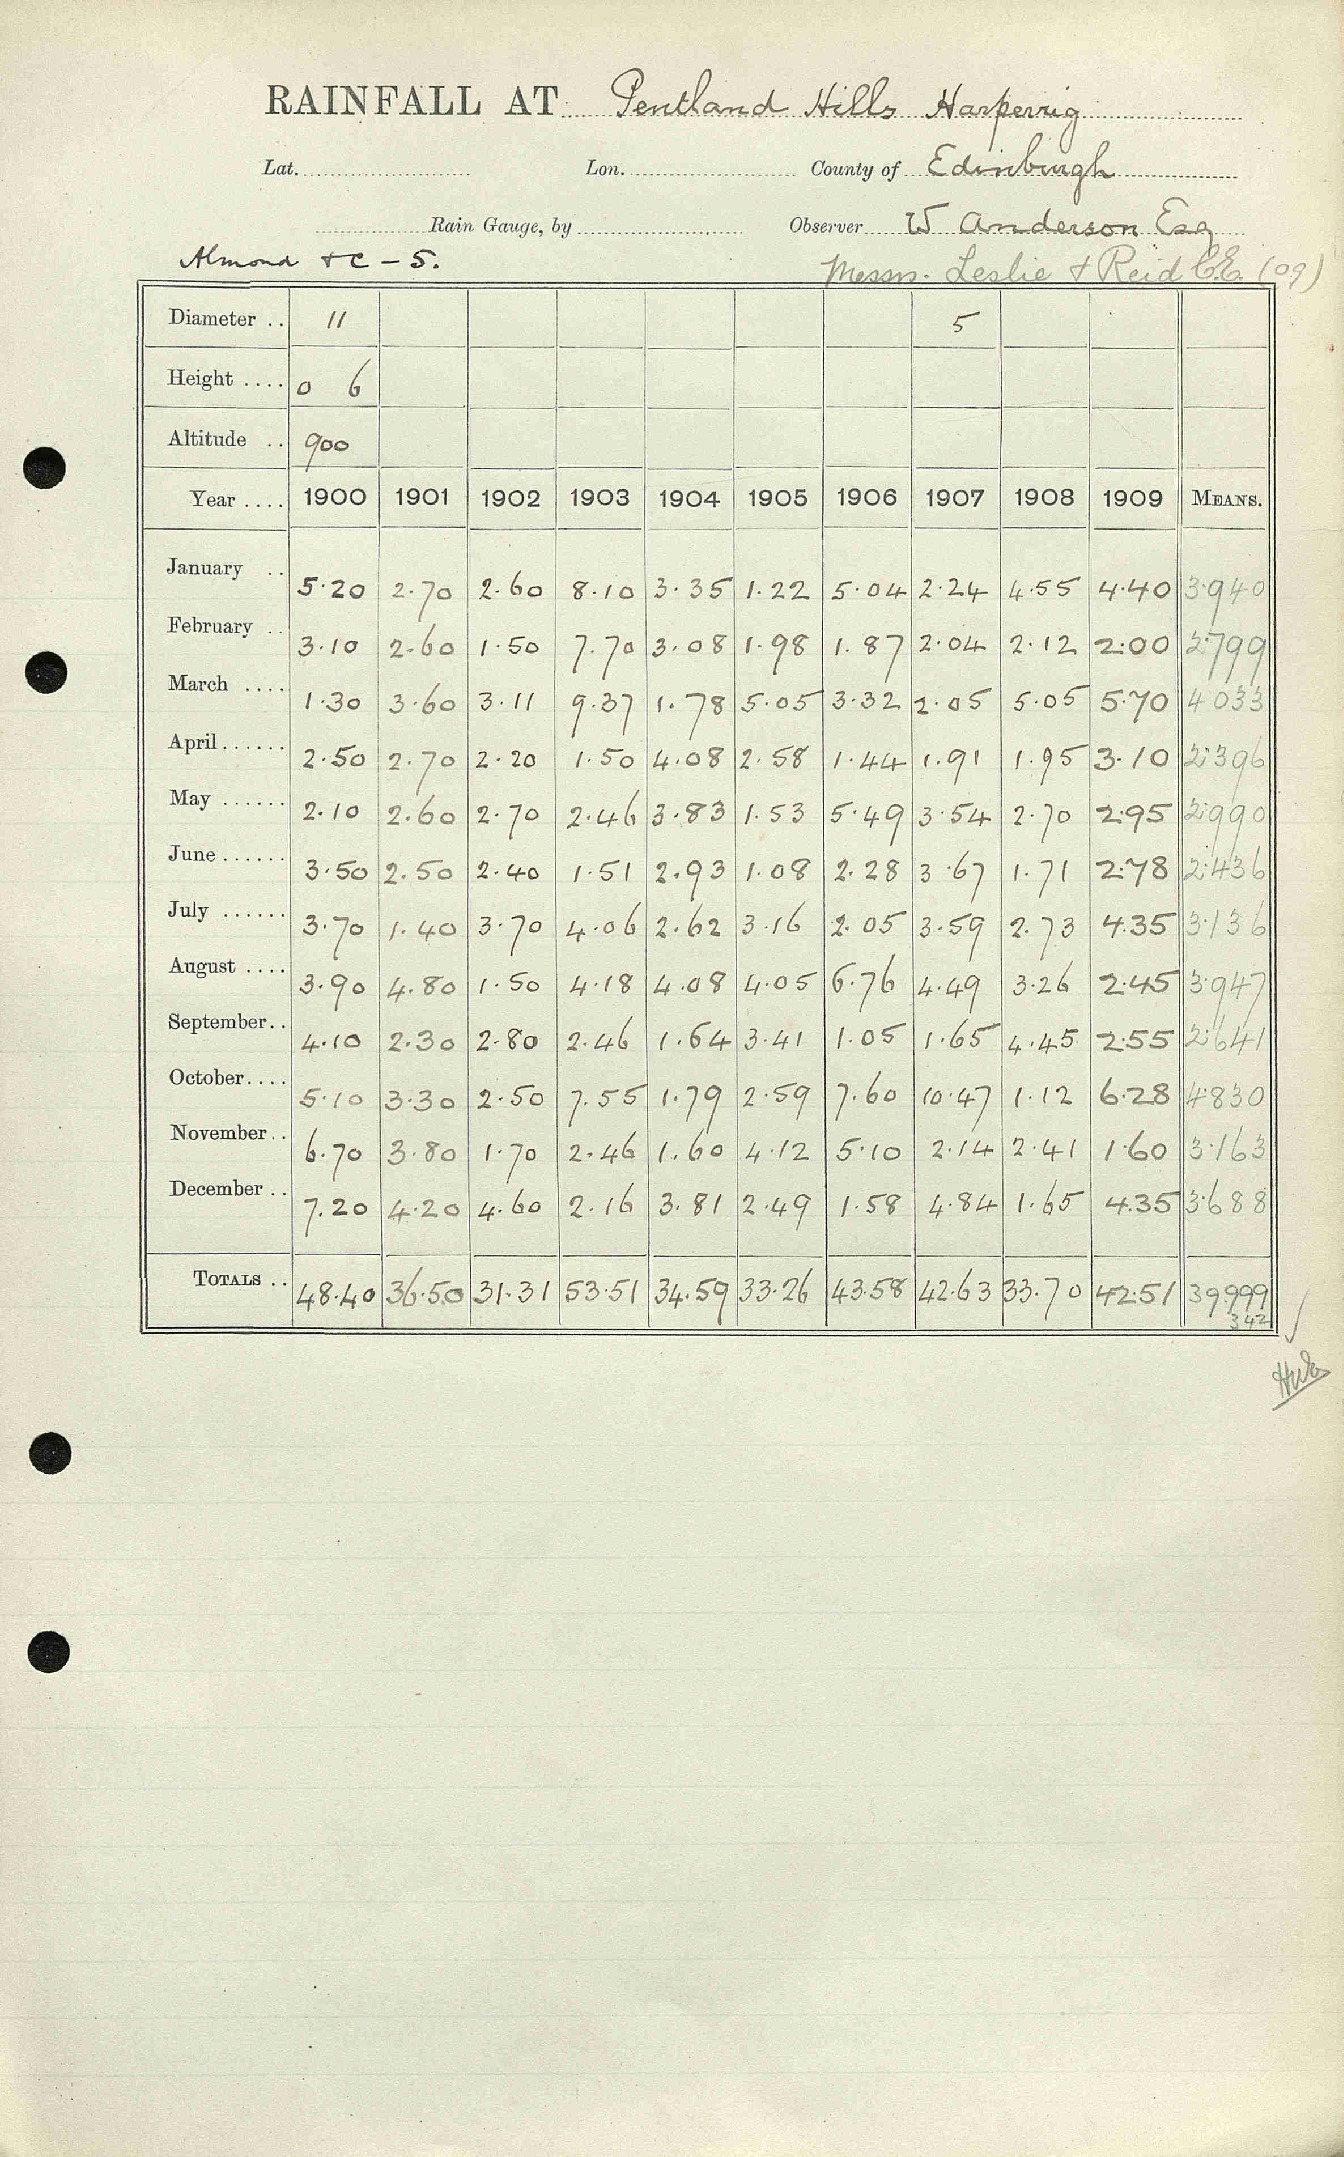 RAINFALL AT Pentland Hills Harperrig
Lat. Lon. County of Edinburgh
Rain Gauge, by Observer W Anderson Esq
Almond + C - 5. Messrs. Leslie & Reid C.E. (09)
Diameter .. 11 5
Height .... 0 6
Altitude .. 900
Year .... 1900 1901 1902 1903 1904 1905 1906 1907 1908 1909 MEANS.
January .. 5.20 2.70 2.60 8.10 3.35 1.22 5.04 2.24 4.55 4.40 3.940
February .. 3.10 2.60 1.50 7.70 3.08 1.98 1.87 2.04 2.12 2.00 2.799
March .... 1.30 3.60 3.11 9.37 1.78 5.05 3.32 2.05 5.05 5.70 4.033
April...... 2.50 2.70 2.20 1.50 4.08 2.58 1.44 1.91 1.95 3.10 2.396
May ...... 2.10 2.60 2.70 2.46 3.83 1.53 5.49 3.54 2.70 2.95 2.990
June...... 3.50 2.50 2.40 1.51 2.93 1.08 2.28 3.67 1.71 2.78 2.436
July ...... 3.70 1.40 3.70 4.06 2.62 3.16 2.05 3.59 2.73 4.35 3.136
August .... 3.90 4.80 1.50 4.18 4.08 4.05 6.76 4.49 3.26 2.45 3.947
September.. 4.10 2.30 2.80 2.46 1.64 3.41 1.05 1.65 4.45 2.55 2.641
October.... 5.10 3.30 2.50 7.55 1.79 2.59 7.60 10.47 1.12 6.28 4.830
November.. 6.70 3.80 1.70 2.46 1.60 4.12 5.10 2.14 2.41 1.60 3.163
December .. 7.20 4.20 4.60 2.16 3.81 2.49 1.58 4.84 1.65 4.35 3.688
TOTALS .. 48.40 36.50 31.31 53.51 34.59 33.26 43.58 42.63 33.70 42.51 39.999
342